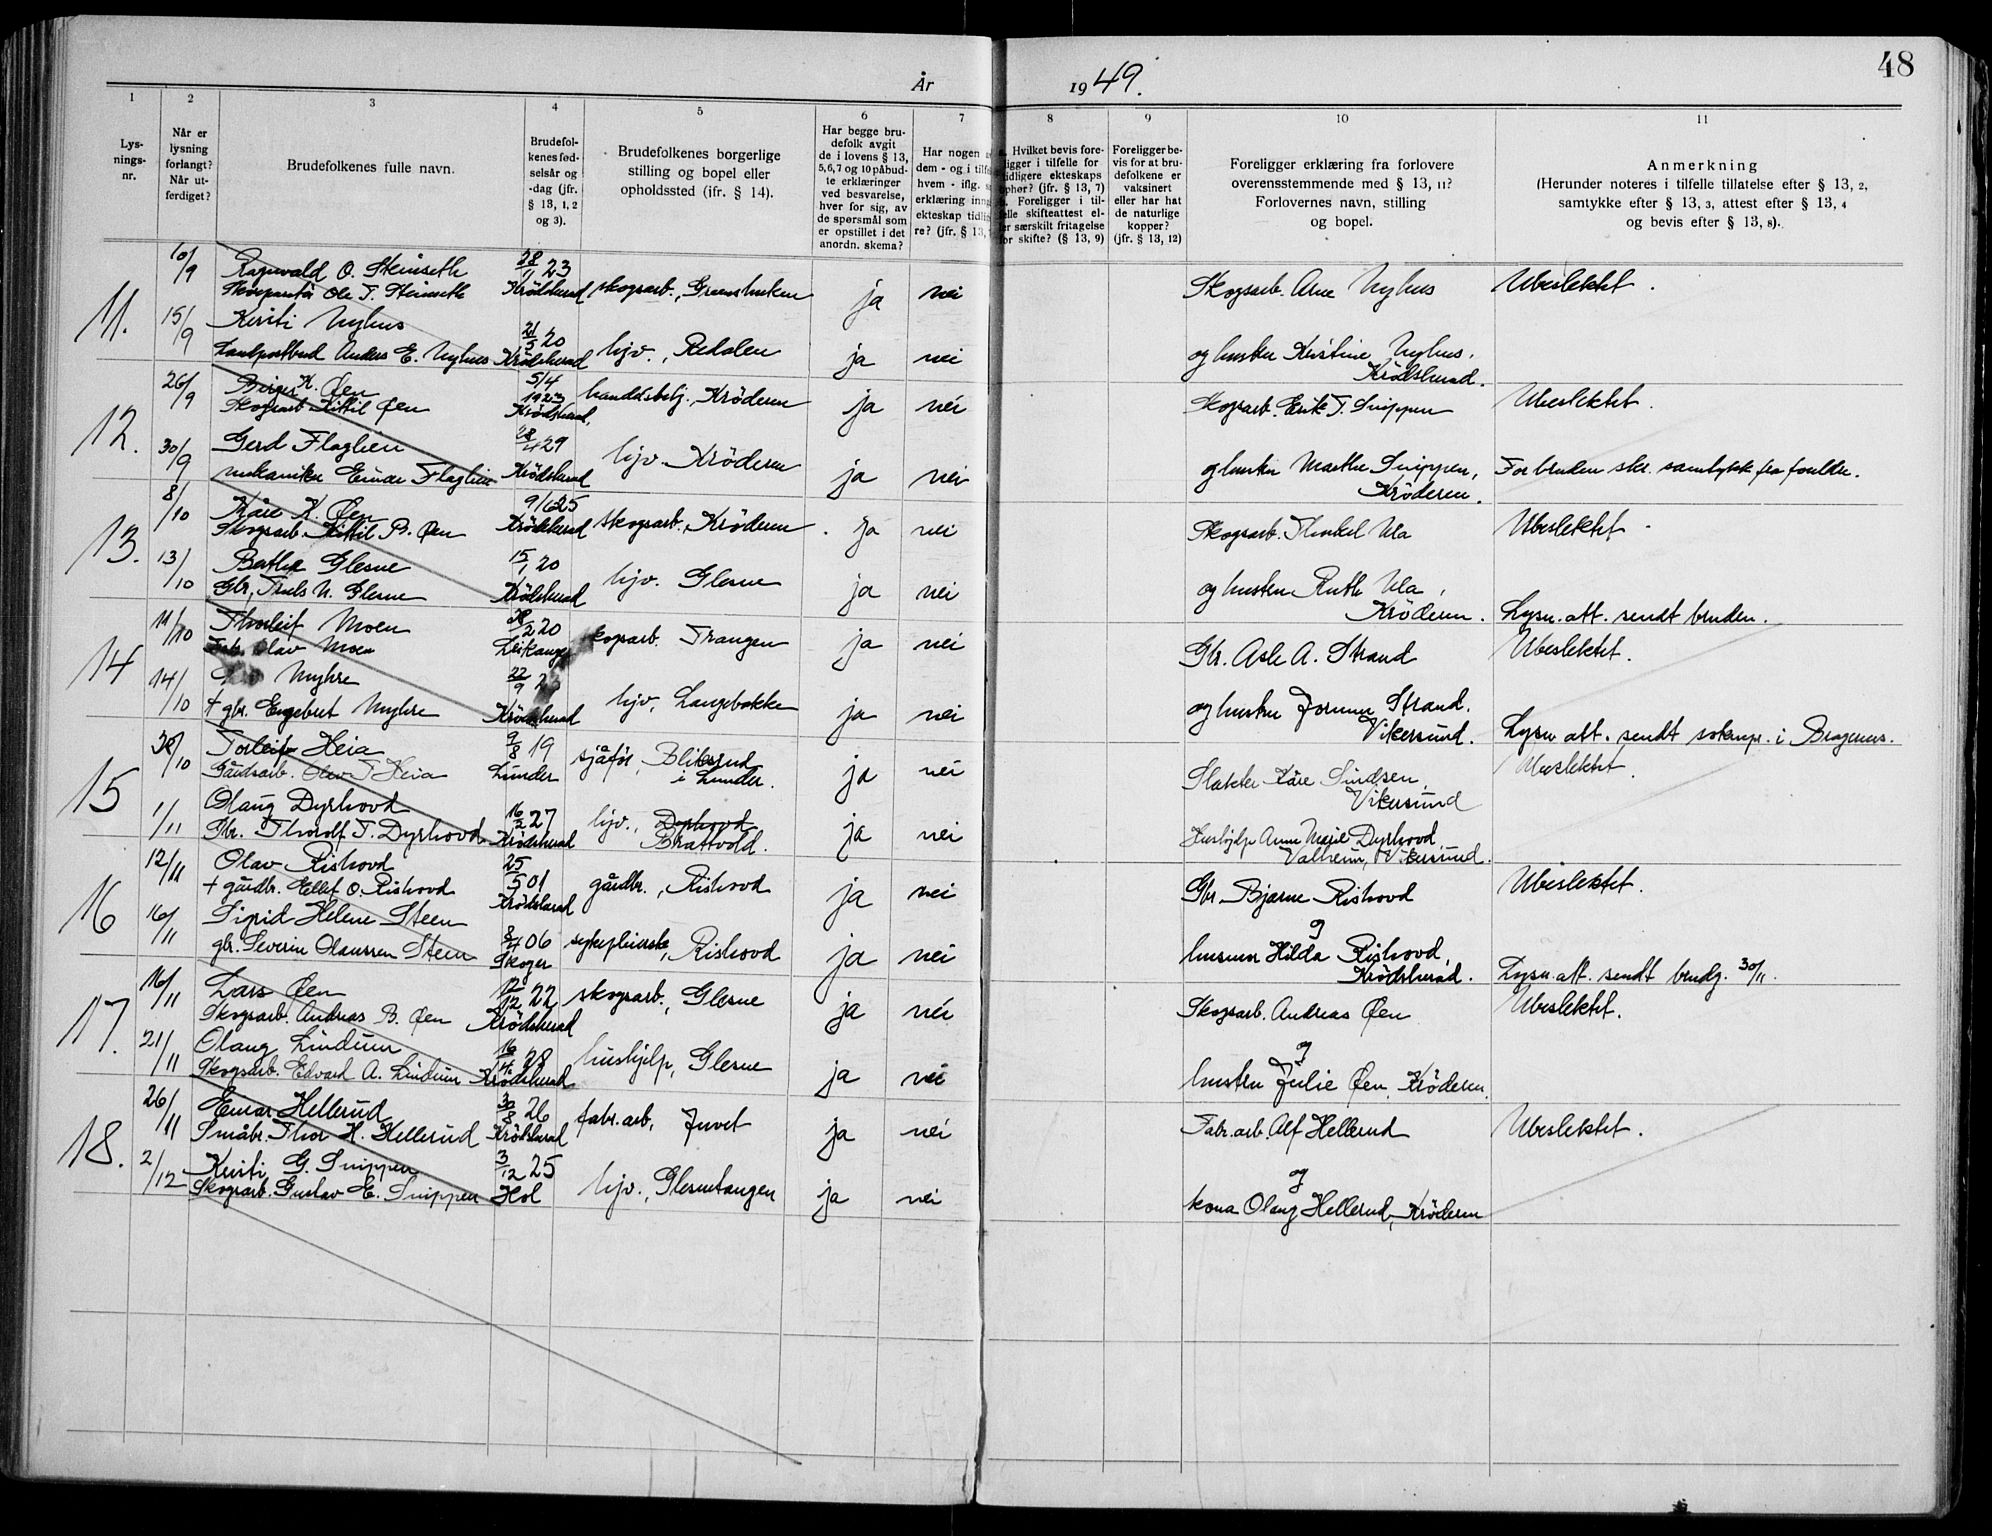 48
År 1949.
1 2 3 4 5 6 7 8 9 10 11
Lys-
nings-
nr.
Når er
lysning
forlangt?
Når ut-
ferdiget?
Brudefolkenes fulle navn.
Brudefol-
kenes fød-
selsår og
-dag (jfr.
§ 13, 1, 2
og 3).
Brudefolkenes borgerlige
stilling og bopel eller
opholdssted (ifr. § 14).
Har begge bru-
defolk avgit
de i lovens § 13,
5,6,7 og 10 påbud-
te erklæringer
ved besvarelse,
hver for sig, av
de spørsmål som
er opstillet i det
anordn. skema?
Har nogen
dem - og i tilf
hvem - iflg.
erklæring inng
ekteskap tidli
re? (jfr. § 13,
Hvilket bevis fore-
ligger i tilfelle for
tidligere ekteskaps
ophør? (jfr. § 13, 7)
Foreligger i til-
felle skifteattest el-
er særskilt fritagelse
for skifte? (§ 13, 9)
Foreligger be-
vis for at bru-
defolkene er
vaksinert
eller har hat
de naturlige
kopper?
(jfr. § 13, 12)
Foreligger erklæring fra forlovere
overensstemmende med § 13, 11?
Forlovernes navn, stilling
og bopel.
Anmerkning
(Herunder noteres i tilfelle tillatelse efter § 13, 2,
samtykke efter § 13, 3, attest efter § 13, 4
og bevis efter § 13, 8).
11. 10/9 Ragnvald O. Steinseth 28/11 23
Ole T. Steinseth Krødsherad skogsarb., ja nei Skogsarb. Arne Nyhus Ubeslektet.
15/9 Kirsti Nyhus 21/5 20
Landpostbud Anders E. Nyhus Krødsherad hjv., Redalen ja nei og hustru Kristine Nyhus,
Krødsherad.
12. 26/9 Birger K. Øen 5/4
Skogsarb. Kittil Øen Krødsherad, handelsbetj., Krøderen ja nei Skogsarb. Erik T. Snippen Ubeslektet.
30/9 Gerd Flaglien 28/4 29
mekaniker Einar Flaglien Krødsherad hjv. Krøderen ja nei og hustru Marthe Snippen, For bruden skr. samtykke fra foreldre.
Krøderen.
13. 8/10 Kåre K. Øen 9/6 25
Skogsarb. Kittil B. Øen Krødsherad skogsarb., Krøderen. ja nei Skogsarb. Thorkel Ula Ubeslektet.
13/10 Glesne 15/1 20
Gbr. Truls N. Glesne Krødsherad hjv. Glesne ja nei og hustru Ruth Ula,
Krøderen. Lysn. att. sendt bruden.
14 11/10 Thorleif Moen 2 20
Olav Moen Leikanger skogsarb. Trangen ja nei Gbr. Asle A. Strand Ubeslektet.
14/10 Myhre 22/9
+ gbr. Engebret Myhre Krødsherad hjv, Langebakke ja nei og hustru Jorunn Strand.
Vikersund. Lysn att. sendt soknepr. i Bragernes.
15 /10 Torleif Heia 9/8 19
Gårdsarb. Olav T. Heia Lunder sjåfør, Bliksrud i Lunder. ja nei Slakter Kåre Simdsen, Ubeslektet.
Vikersund
1/11 Olaug Dyrhovd 16/2 27
Gbr. Thorolf T. Dyrhovd Krødsherad hjv., Dyrhovd Brattvold. ja nei Hushjelp Anne Marie Dyrhovd,
Valheim, Vikersund.
16 12/11 Olav Rishovd 25/5 01
+ gårdbr. Ellef O. Rishovd Krødsherad gårdbr., Rishovd ja nei Gbr. Bjarne Rishovd Ubeslektet.
og
16/11 Sigrid Helene Steen 8/ 06
gbr. Severin Olaussen Steen Skoger sykepleierske, Rishovd ja nei husmor Hilda Rishovd,
Krødsherad. Lysn. att. sendt brudg. 30/11.
17. 16/11 Lars Øen 17/12 22
Skogsarb. Andreas B. Øen Krødsherad skogsarb., Glesne ja nei Skogsarb. Andreas Øen Ubeslektet.
og
21/11 Olaug Lindum 16/4 28
Skogsarb. Edvard A. Lindum Krødsherad hushjelp, Glesne ja nei hustru Julie Øen, Krøderen.
18. 26/11 Einar Hellerud 30/8 26
Småbr. Thor H. Hellerud Krødsherad fabr.arb., Juvet ja nei Fabr.arb. Alf Hellerud Ubeslektet.
og
2/12 Kirsti G. Snippen 3/12 25
Skogsarb. Gustav E. Snippen Hol hjv., Glesnetangen ja nei kona Olaug Hellerud, Krøderen